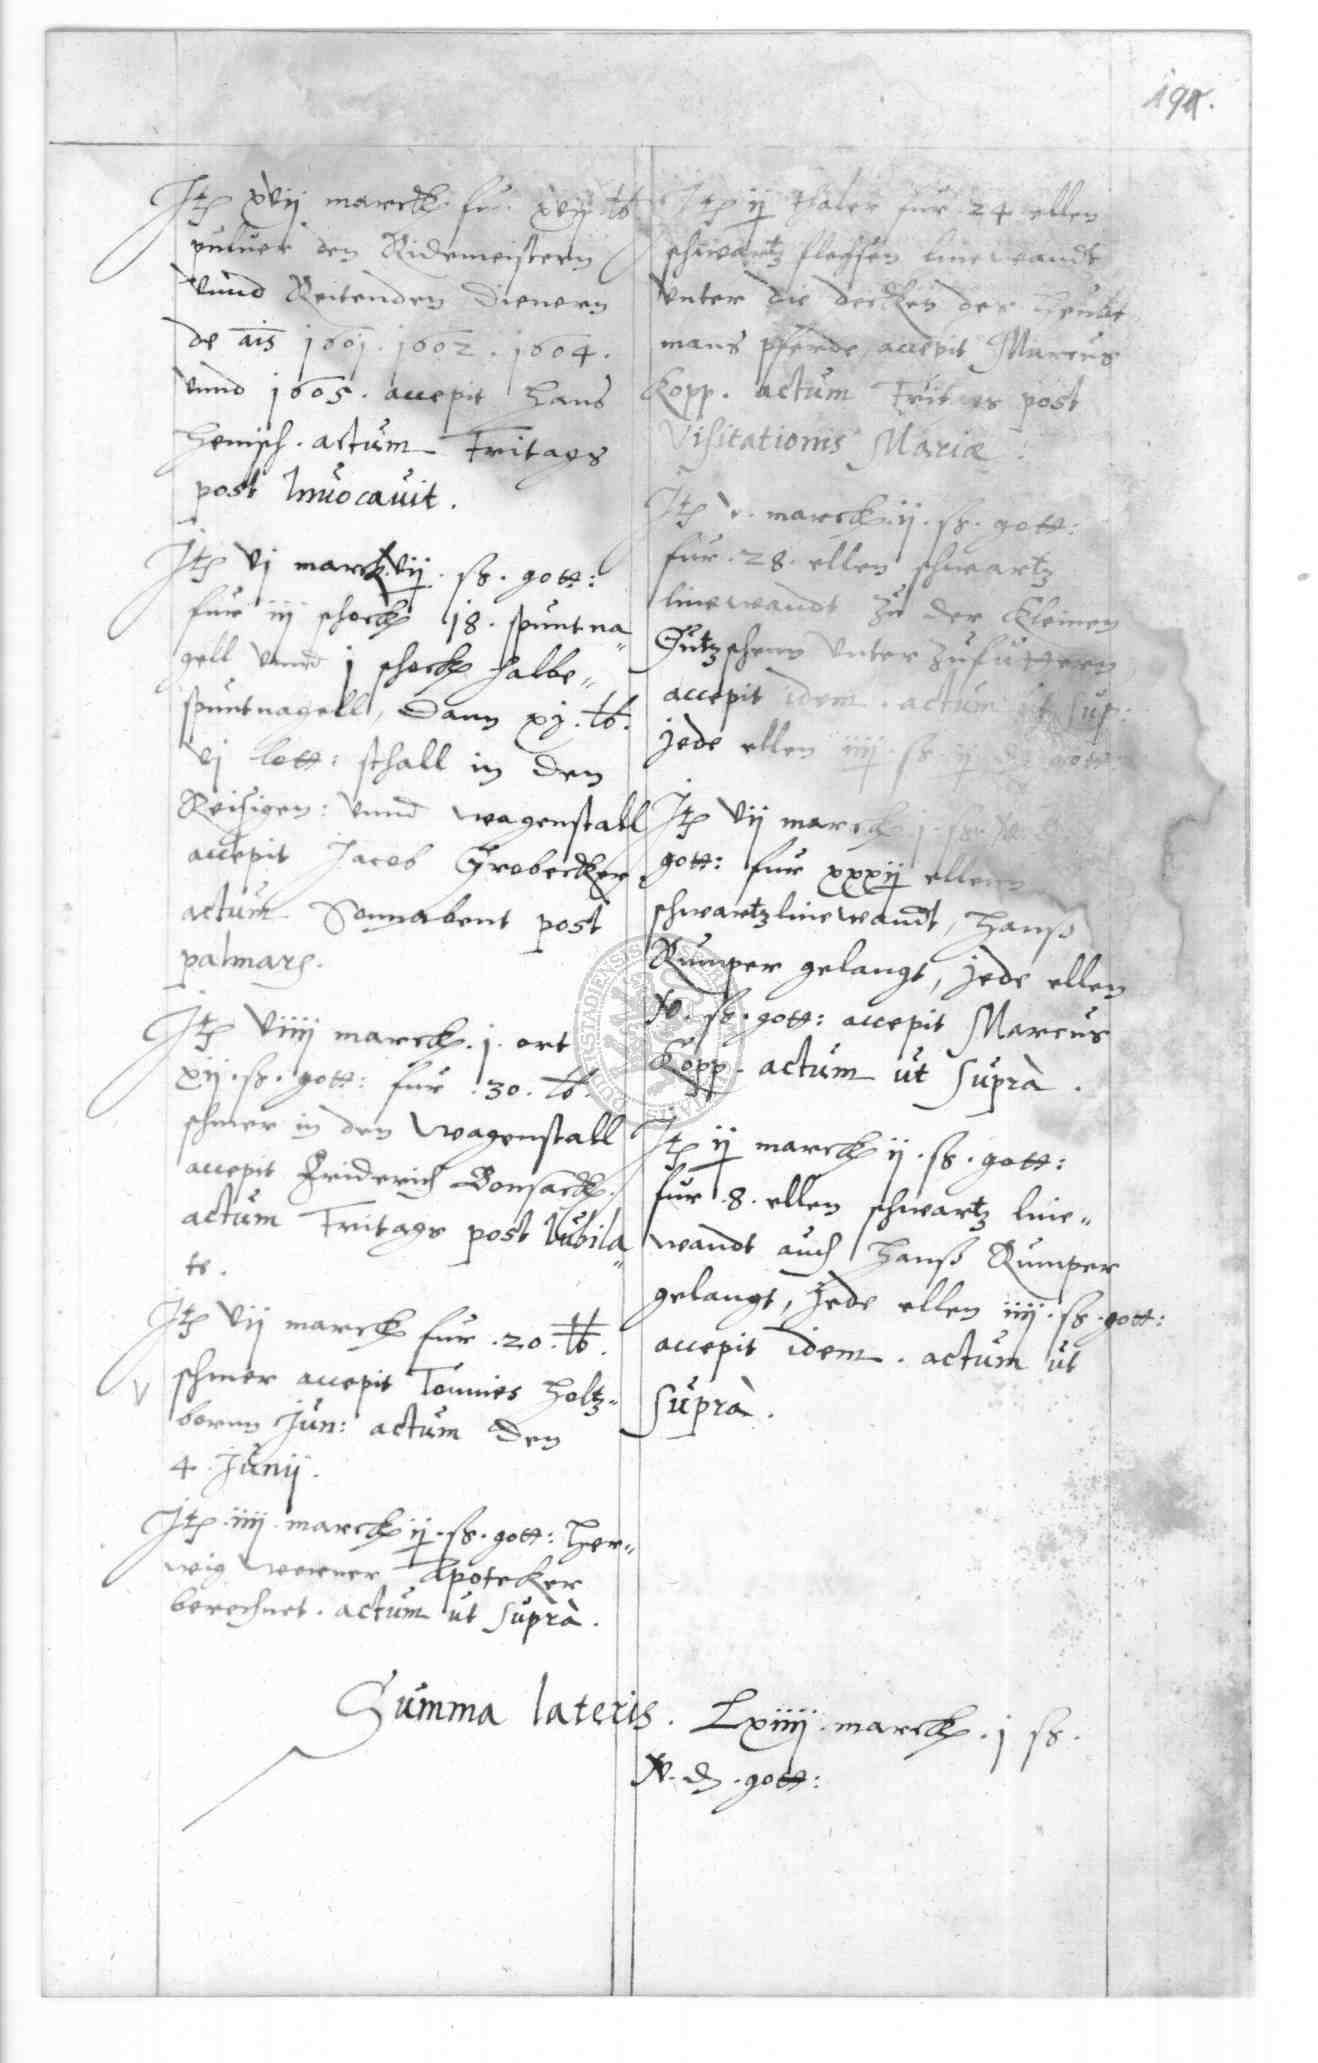 191.
Jtem xvij marck fur xvij lb
puluer den Ridemeistern
vnnd Reitenden dienern
de a͞is 1601. 1602. 1604.
vnnd 1605. accepit Hans
Henisch. actum Fritags
post Inuocauit.
Jtem vj marck vij. ß. gott:
fur iij schock 18. spuntna„
gell vnnd j schock halbe„
spuntnagell, dann xj. lb.
vj lott: sthall in den
Reisigen: vnnd wagenstall
accepit Jacob Grobecker
actum Sonnabent post
palmarum.
Jtem viiij marck. j. ort
xij. ß. gott: fur .30. lb.
schmer in den wagenstall
accepit Friderich Bonsack.
actum Fritags post Jubila„
te.
Jtem vij marck fur .20. lb.
schmer accepit Tonnies Holtz„
bornn Jun: actum den
4. Junij.
Jtem iiij. marck ij. ß. gott: Her„
wig Werner Apoteker
berechnet. actum ut suprà.
Jtem ij thaler fur 24 ellen
schwartz flechsen linewandt
vnter die decken der Heubt
mans pferde, accepit Marcus
Kopp. actum Fritags post
Visitationis Mariæ.
Jtem v. marck. ij. ß. gott:
fur .28. ellen schwartz
linewandt zu der kleinen
Gutzschenn vnter zufutternn,
accepit idem. actum ut sup:
jede ellen iiij. ß. ij d gott:
Jtem vij marck j. ß.
gott: fur xxxij ellenn
schwartz linewandt, Hanß
Rumper gelangt, jede ellen
ß. gott: accepit Marcus
Kopp. actum ut suprà.
Jtem ij marck ij. ß. gott:
fur .8. ellen schwartz line„
wandt auch Hanß Rumper
gelangt, jede ellen iiij. ß. gott:
accepit idem. actum ut
suprà.
Summa lateris. Lxiiij marck. j ß.
d. gott: